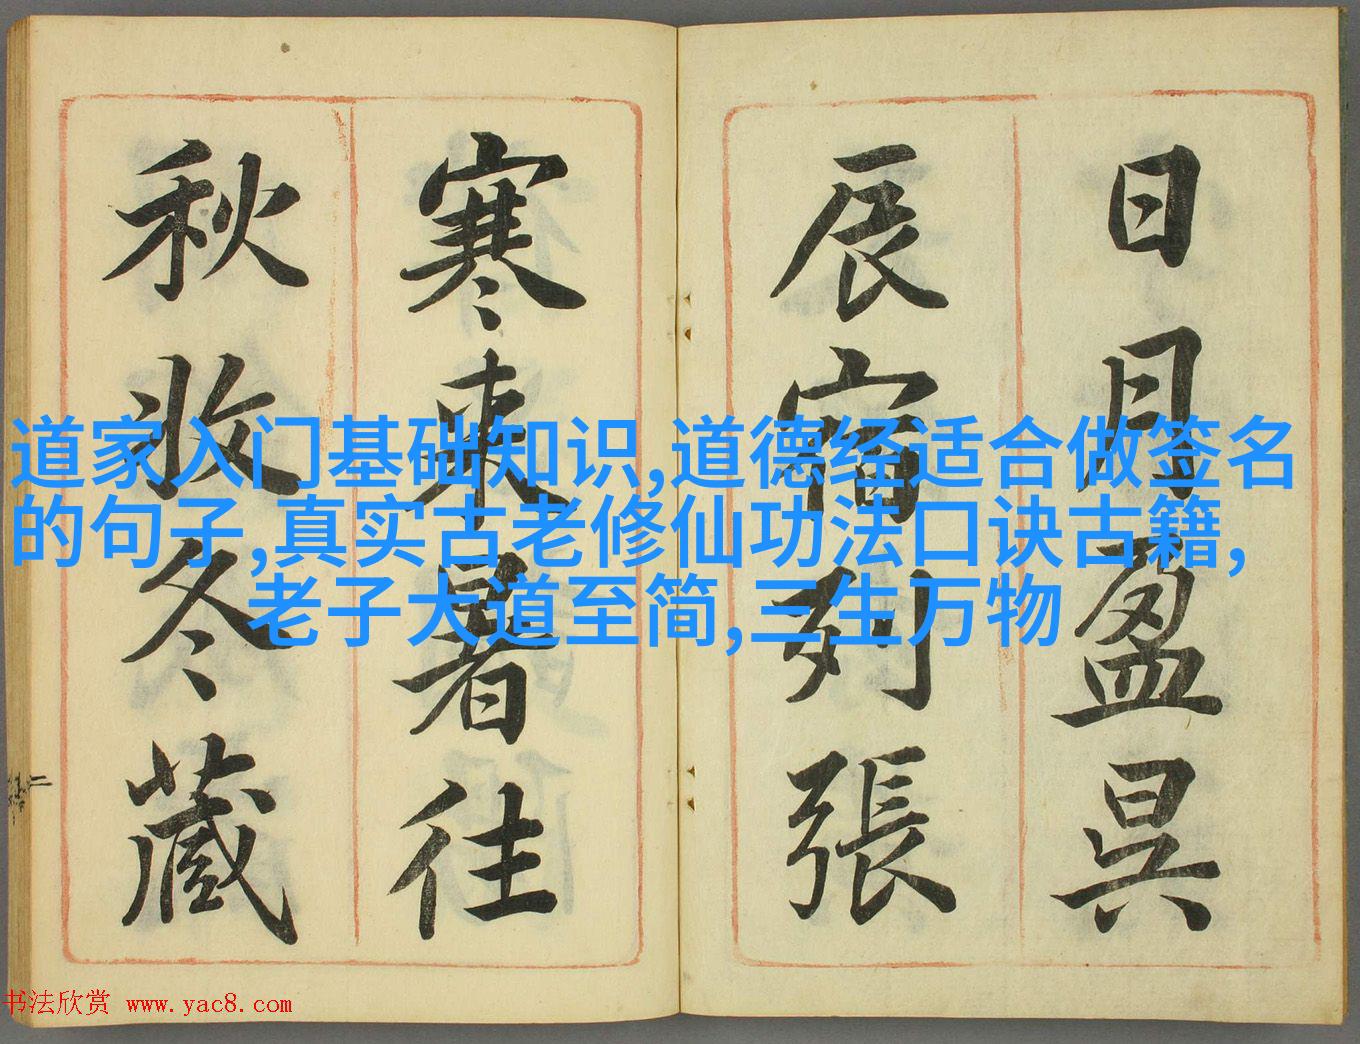 日月盈昃
辰宿列張
寒來暑往
秋收冬藏
道家入门基础知识,道德经适合做签名
的句子,真实古老修仙功法口诀古籍,
老子大道至简,三生万物
二
书法欣赏 www.yac8.com